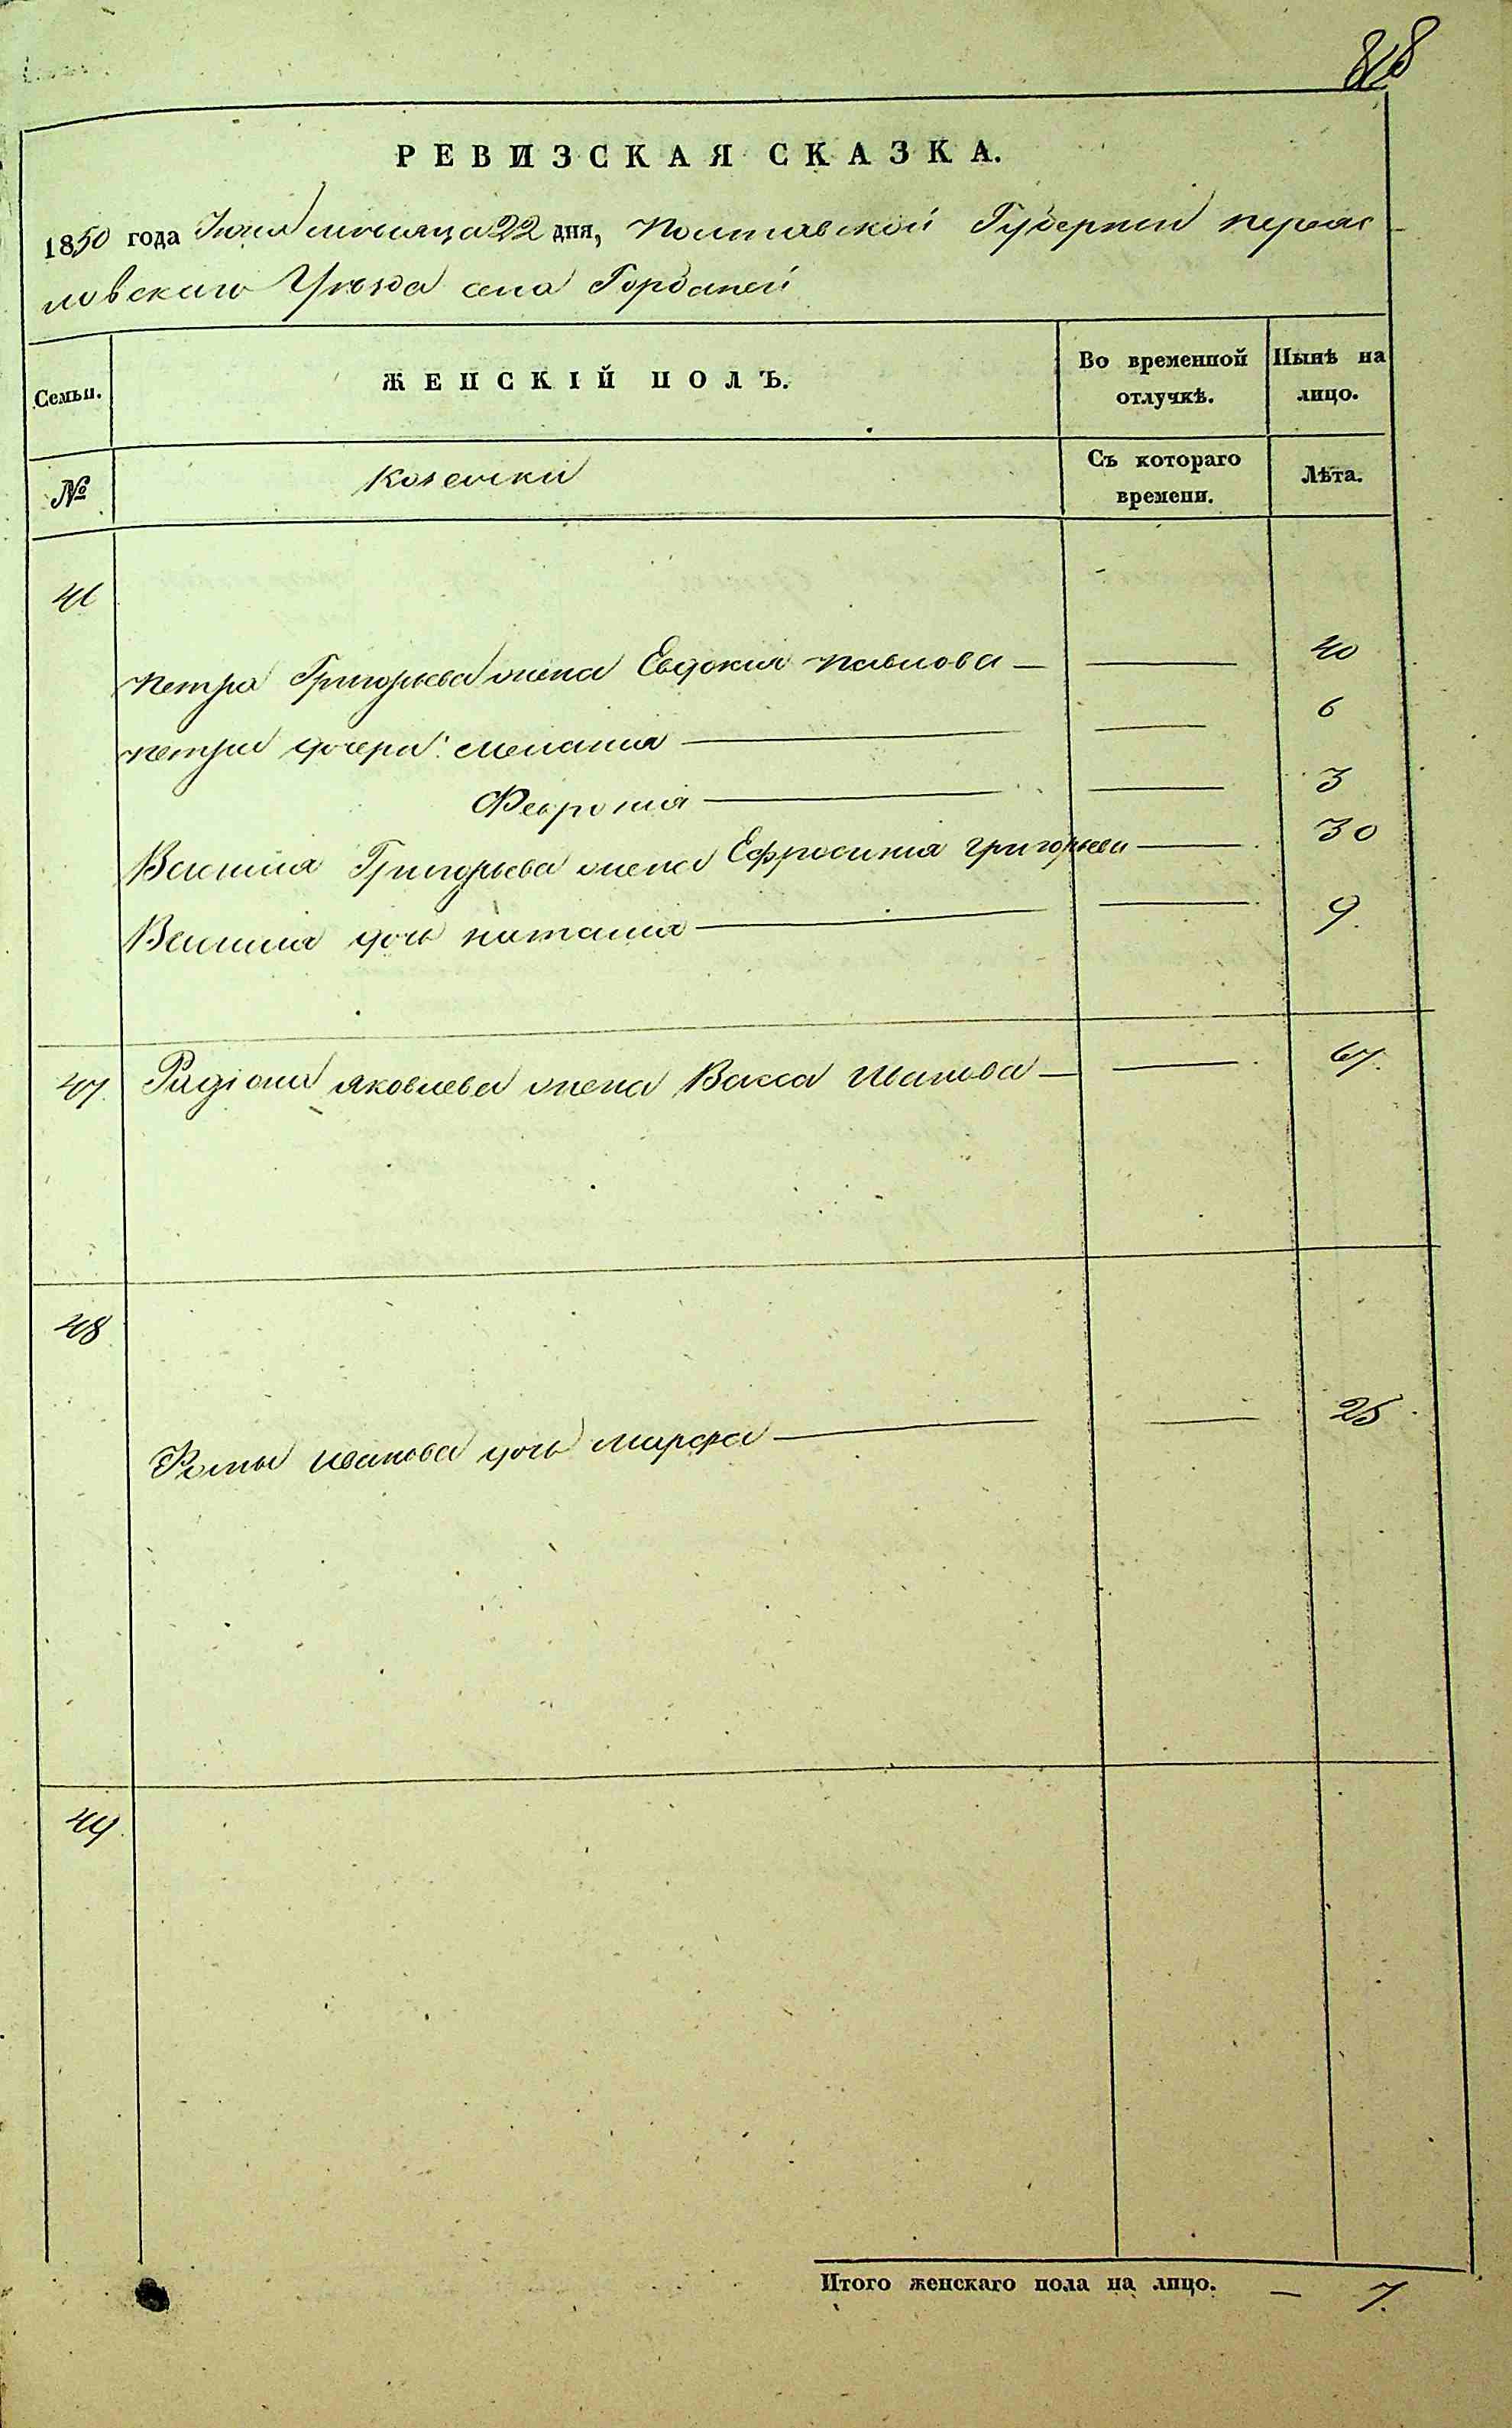 РЕВИЗСКАЯ СКАЗКА.
1850 года Июня месяца 22 дня, Полтавской Губернии Переяс
ловскаго Уезда села Горбаней
Семьи.
ЖЕНСКІЙ ПОЛЪ.
Во временной отлучкѣ.
Нынѣ на лицо.
№
Козачки
Съ котораго времени.
Лѣта.
46
Петра Григорьева жена Евдокия Павлова — — 40
Петра дочери: Мелания — — 6
Феврония — — 3
Василия Григорьева жена Ефросиния Григорьева — 30
Василия дочь Наталия — — 9.
47. Радiона Яковлева жена Васса Иванова — — 67.
48
Фомы Иванова дочь Марфа — — 25
49.
Итого женскаго пола на лицо. — 7.